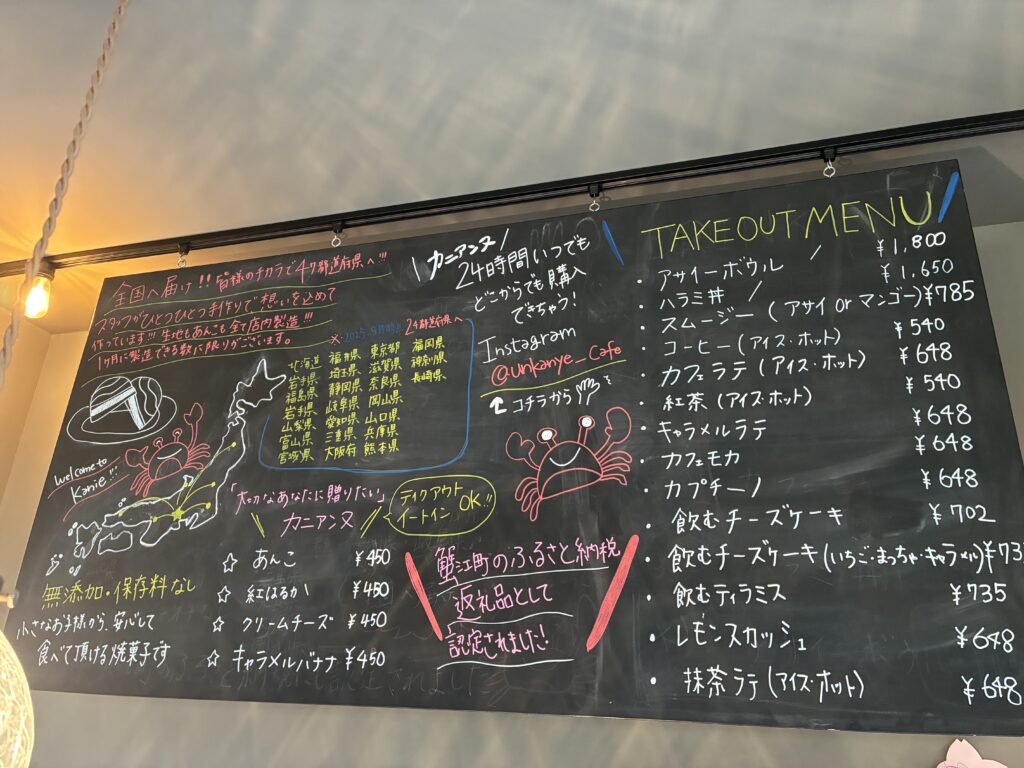 全国へ届け!!皆様のチカラで47都道府県へ!!!
スタッフがひとつひとつ手作りで想いを込めて
作っています!!!生地もあんこも全て店内製造!!!
1ヶ月に製造できる数に限りがございます。
※2025.9月時点 24都道府県へ
北海道 福井県 東京都 福岡県
岩手県 埼玉県 滋賀県 神奈川県
福島県 静岡県 奈良県 長崎県
岩手県 岐阜県 岡山県
山梨県 愛知県 山口県
富山県 三重県 兵庫県
宮城県 大阪府 熊本県
Welcome to
Kanie!!!
「大切なあなたに贈りたい」
カニアンヌ
テイクアウト
イートイン OK!!
☆ あんこ ¥450
☆ 紅はるか ¥450
☆ クリームチーズ ¥450
☆ キャラメルバナナ ¥450
無添加・保存料なし
小さなお子様から、安心して
食べて頂ける焼菓子です
\ カニアンヌ /
24時間いつでも
どこからでも購入
できちゃう!
Instagram
@unkanye_cafe
コチラから
蟹江町のふるさと納税
返礼品として
認定されました!
TAKEOUT MENU
・アサイーボウル ¥1,800
・ハラミ丼 ¥1,650
・スムージー (アサイ or マンゴー) ¥785
・コーヒー (アイス・ホット) ¥540
・カフェラテ (アイス・ホット) ¥648
・紅茶 (アイス・ホット) ¥540
・キャラメルラテ ¥648
・カフェモカ ¥648
・カプチーノ ¥648
・飲むチーズケーキ ¥702
・飲むチーズケーキ (いちご・まっちゃ・キャラメル) ¥73
・飲むティラミス ¥735
・レモンスカッシュ ¥648
・抹茶ラテ (アイス・ホット) ¥648